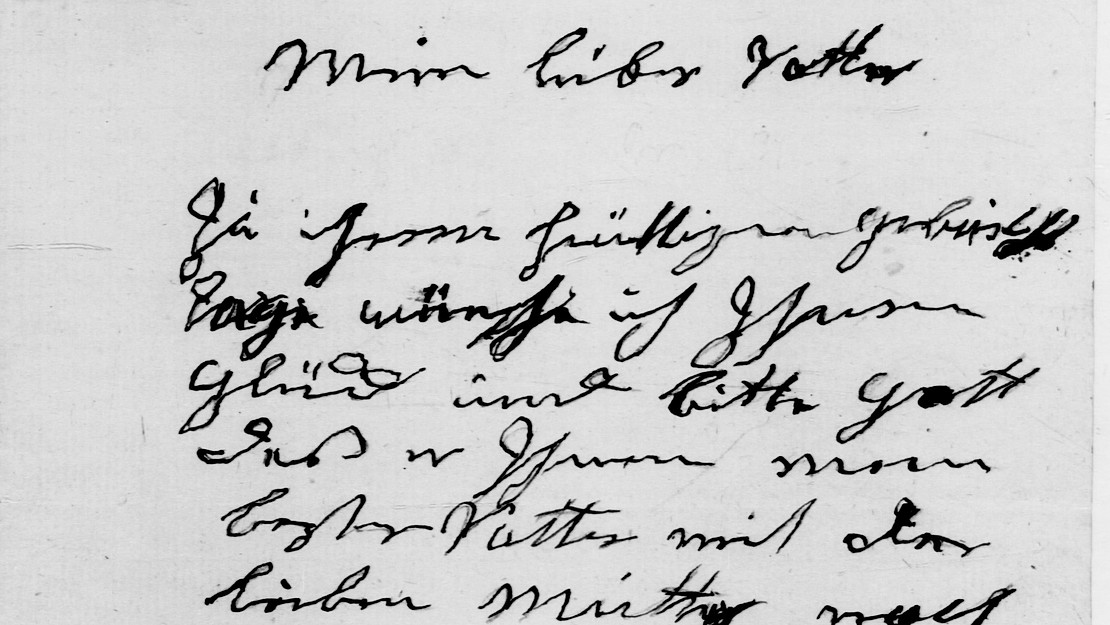 Mein lieber Vatter
Zu ihrem heüttigen gebuhrts
Tage wünsche ich Ihnen
Glück und bitte Gott
daß er Ihnen mein
bester Vatter mit der
lieben Mutter noch